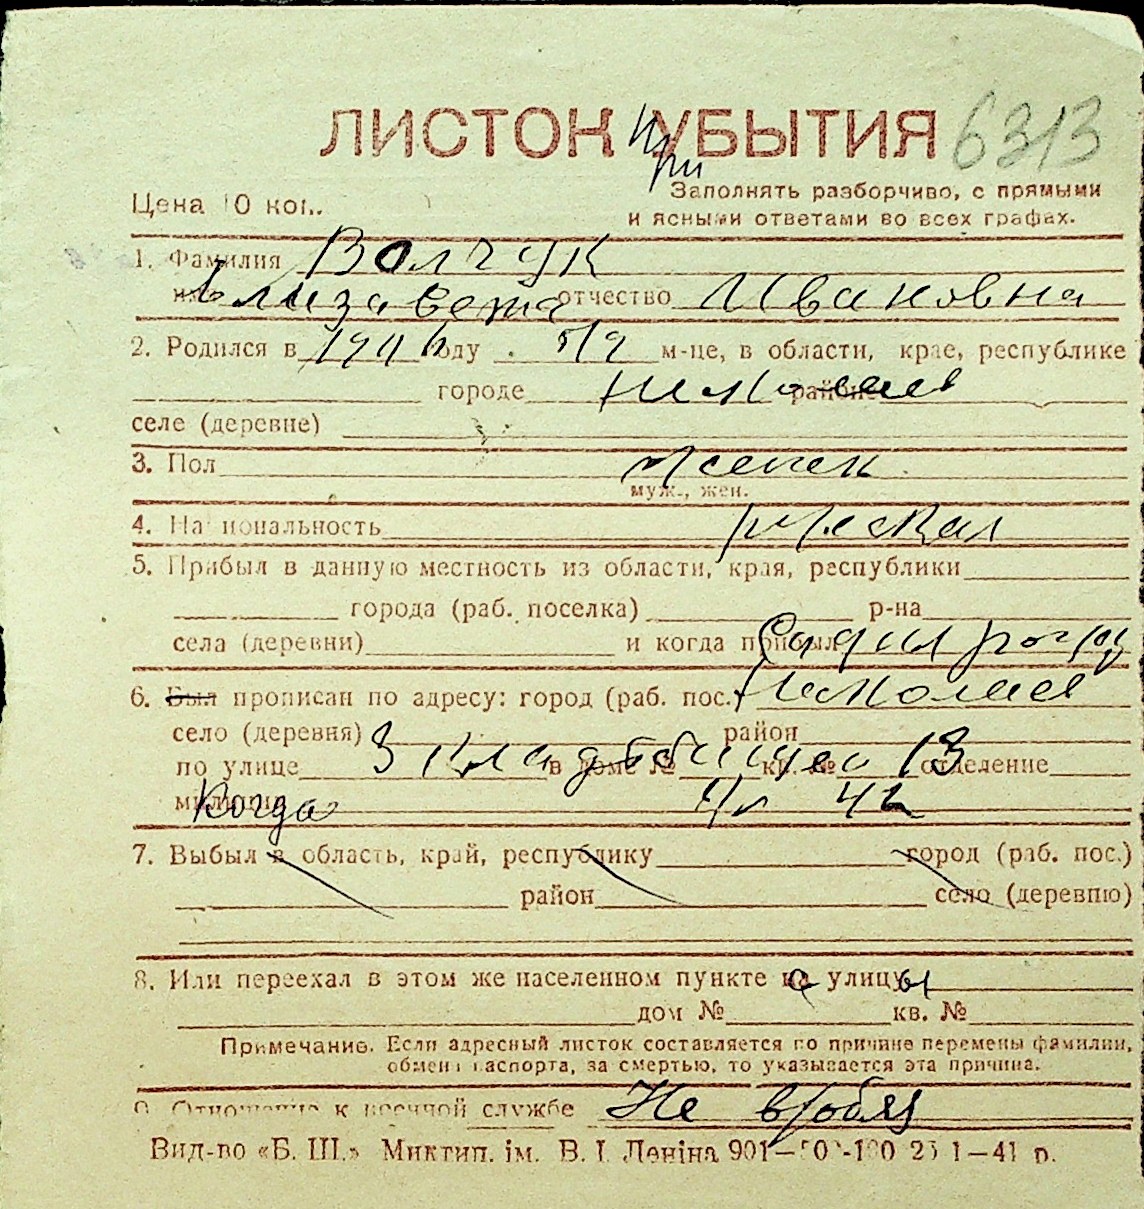 ЛИСТОК УБЫТИЯ 6313
При
Цена 10 коп.
Заполнять разборчиво, с прямыми
и ясными ответами во всех графах.
1. Фамилия Волчук
имя Елизавета отчество Ивановна
2. Родился в году м-це, в области, крае, республике
городе Николаев районе
селе (деревне)
3. Пол женск
муж., жен.
4. Национальность русская
5. Прибыл в данную местность из области, края, республики
города (раб. поселка) р-на
села (деревни) и когда прибыл
6. Был прописан по адресу: город (раб. пос.) Николаев
село (деревня) район
по улице 3 Кладбищен 13 в доме № кв. № отделение
милиции Когда
7. Выбыл в область, край, республику город (раб. пос.)
район село (деревню)
8. Или переехал в этом же населенном пункте на улицу
дом № кв. №
Примечание. Если адресный листок составляется по причине перемены фамилии,
обмена паспорта, за смертью, то указывается эта причина.
9. Отношение к военной службе Не в/обяз
Вид-во «Б. Ш.» Миктип. ім. В. І. Леніна 901